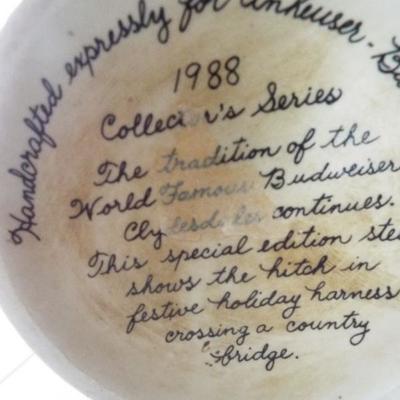 Handcrafted expressly for Anheuser-Bu
1988
Collector's Series
The tradition of the
World Famous Budweiser
Clydesdales continues.
This special edition ste
shows the hitch in
festive holiday harness
crossing a country
bridge.